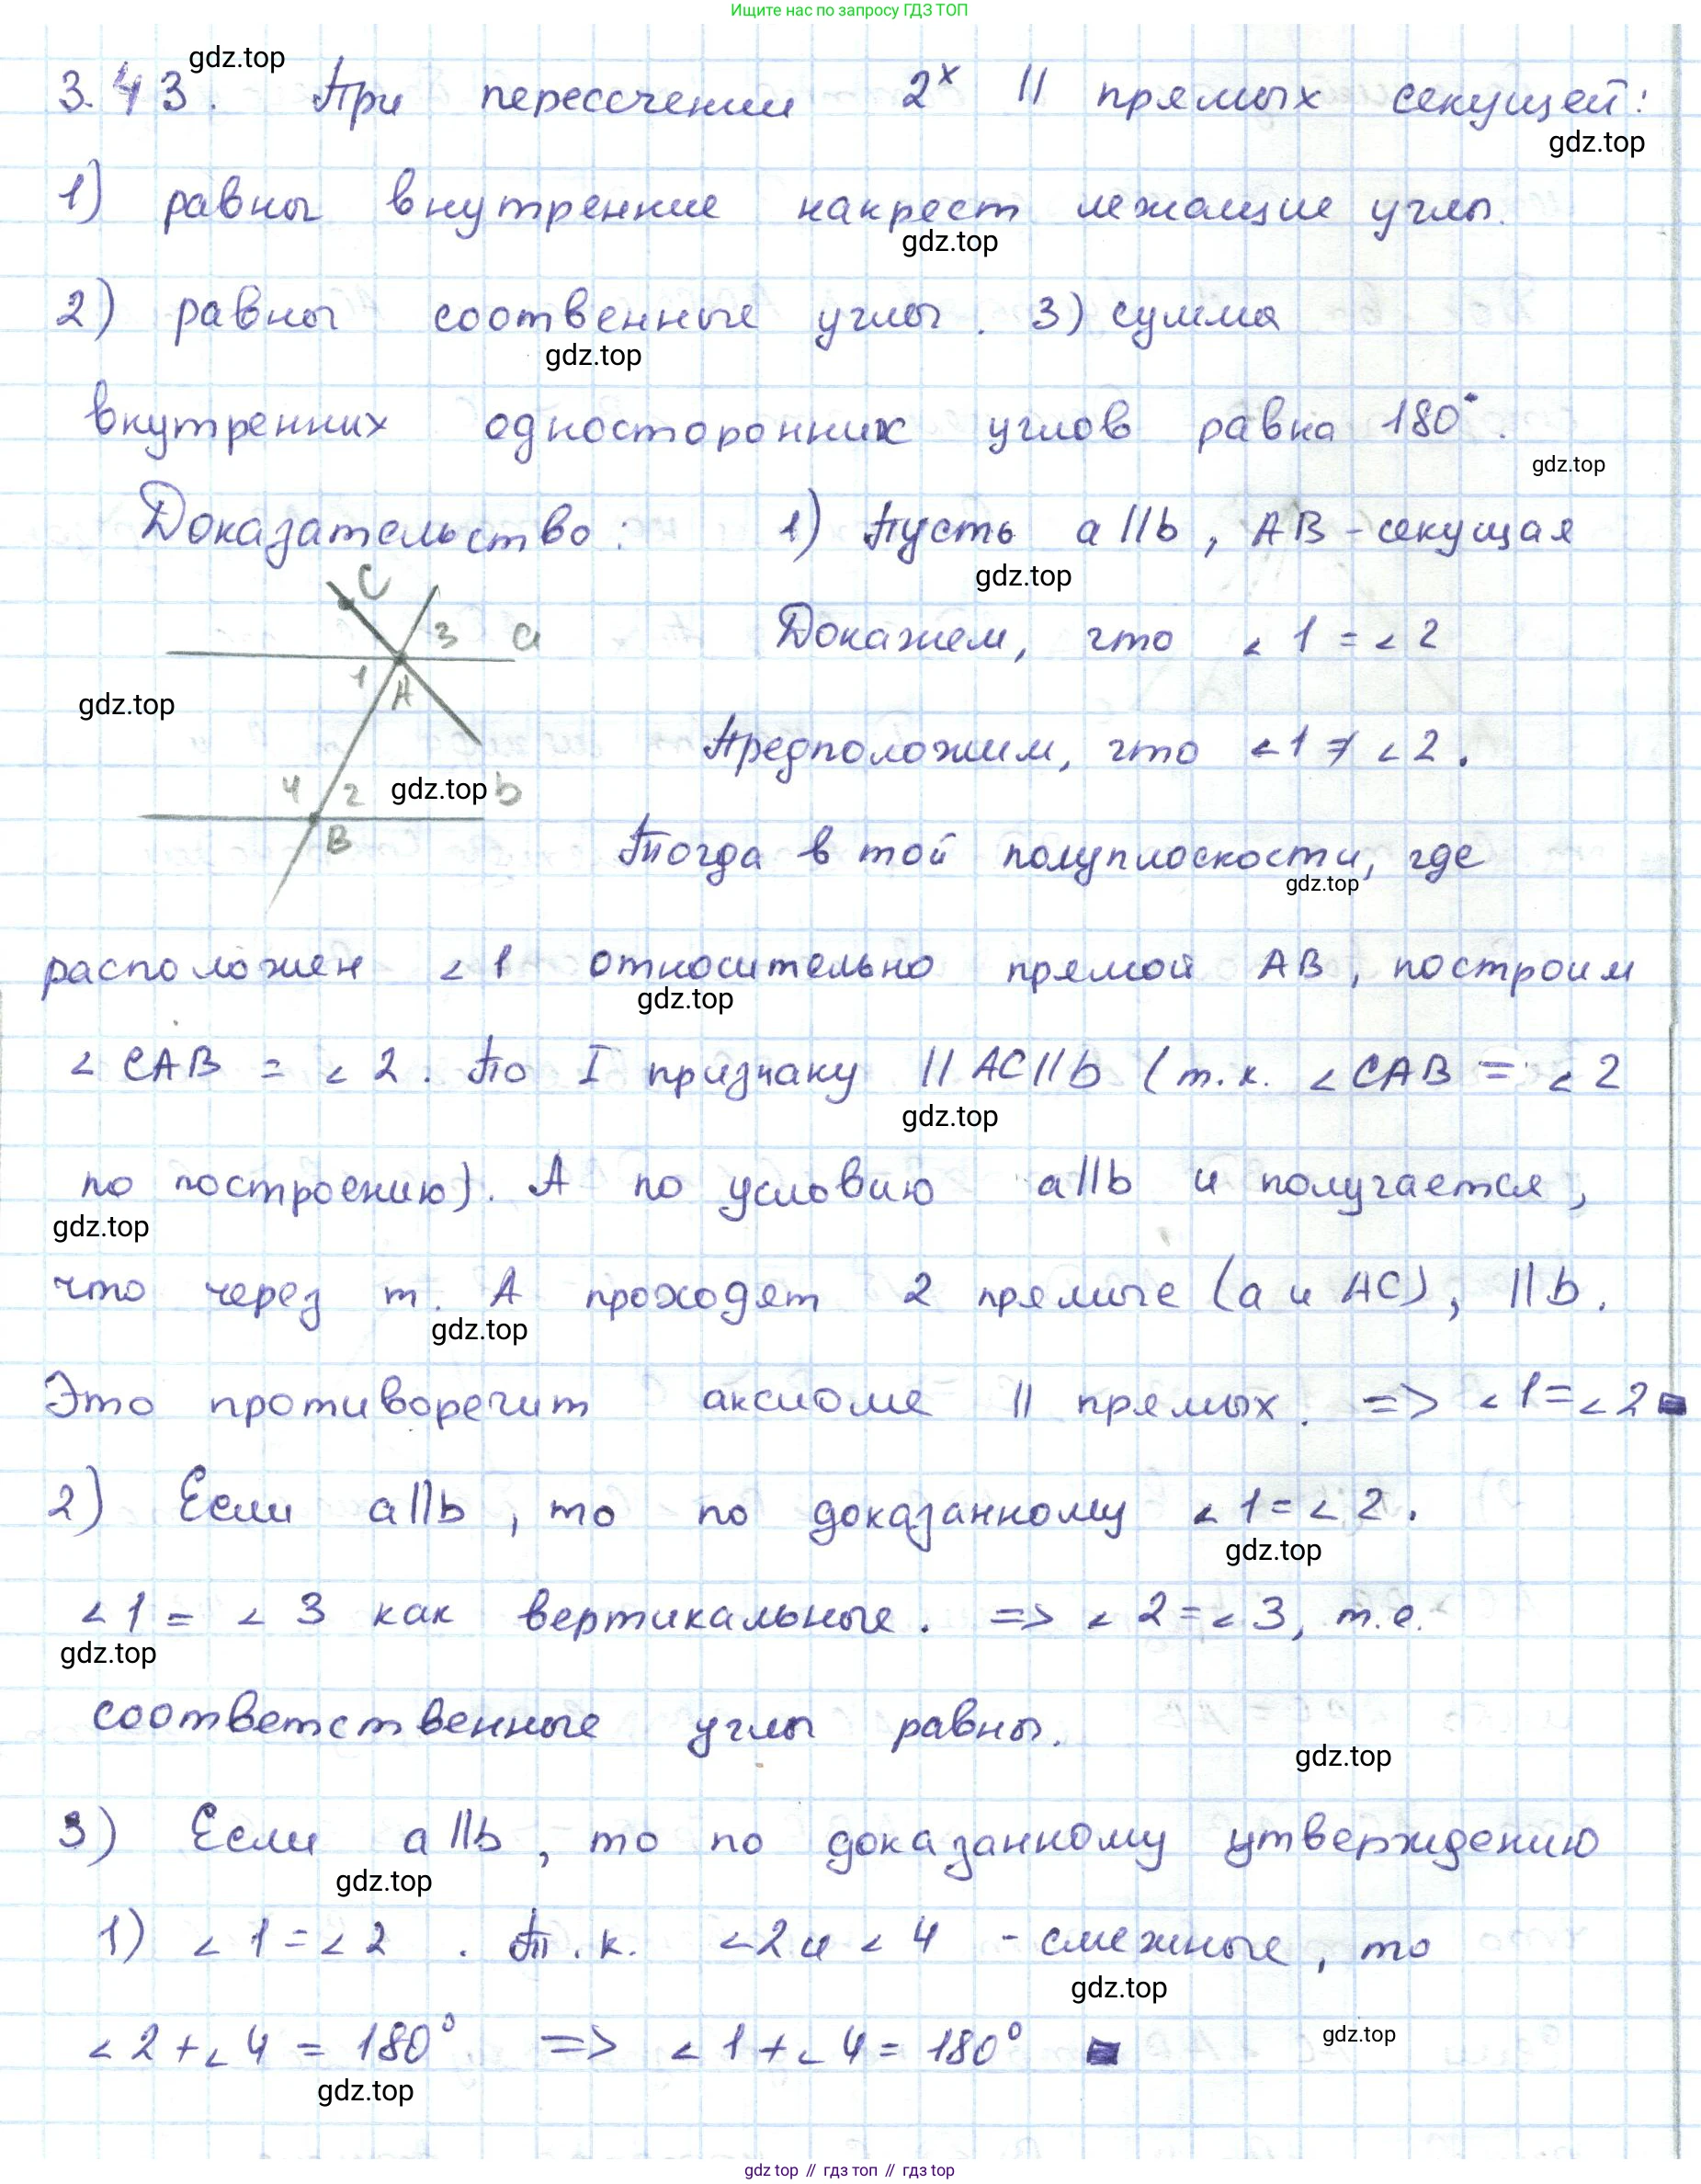 Ищите нас по запросу ГДЗ ТОП
gdz.top
3.43. При пересечении 2х || прямых секущей:
gdz.top
1) равны внутренние накрест лежащие углы.
gdz.top
2) равны соотвенные углы. 3) сумма
gdz.top
внутренних односторонних углов равна 180°.
gdz.top
Доказательство: 1) Пусть a||b, AB - секущая
gdz.top
C
3 a
1 A
gdz.top
4 2 b
gdz.top
B
Докажем, что ∠1 = ∠2
Предположим, что ∠1 ≠ ∠2.
Тогда в той полуплоскости, где
gdz.top
расположен ∠1 относительно прямой AB, построим
gdz.top
∠CAB = ∠2. По I признаку || AC||b (т.к. ∠CAB = ∠2
gdz.top
по построению). А по условию a||b и получается,
gdz.top
что через т. A проходят 2 прямые (a и AC), ||b.
gdz.top
Это противоречит аксиоме || прямых. => ∠1=∠2
2) Если a||b, то по доказанному ∠1=∠2.
gdz.top
∠1 = ∠3 как вертикальные. => ∠2=∠3, т.е.
gdz.top
соответственные углы равны.
gdz.top
3) Если a||b, то по доказанному утверждению
gdz.top
1) ∠1=∠2. Т.к. ∠2 и ∠4 - смежные, то
gdz.top
∠2+∠4 = 180° => ∠1+∠4=180°
gdz.top
gdz.top
gdz top // гдз топ // гдз top